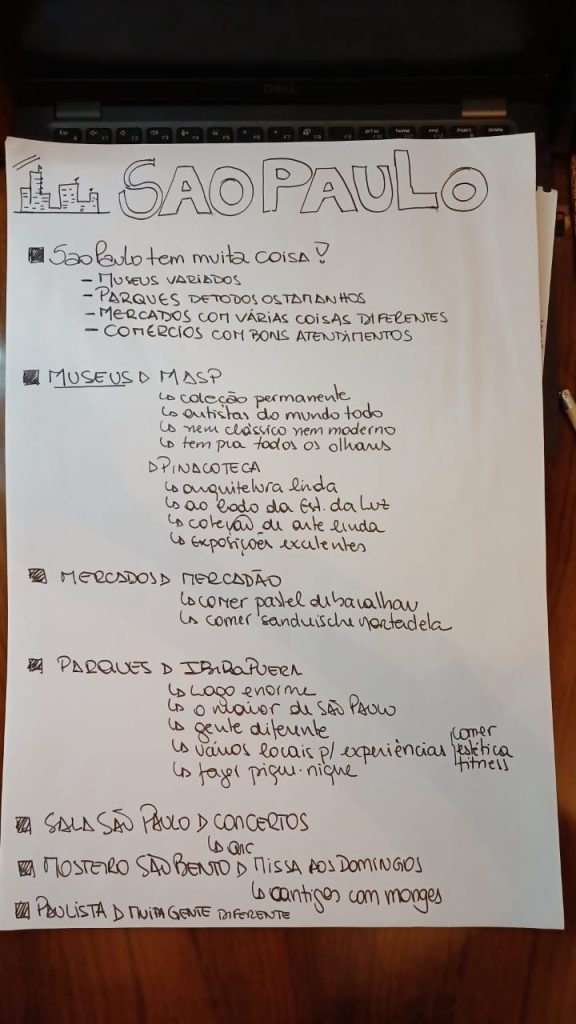 DELL
Esc F1 F2 F3 F4 F5 F6 F7 F8 F9 prtsc home end insert delete
SAO PAULO
São Paulo tem muita coisa!
- MUSEUS VARIADOS
- PARQUES DE TODOS OS TAMANHOS
- MERCADOS COM VÁRIAS COISAS DIFERENTES
- COMERCIOS COM BONS ATENDIMENTOS
MUSEUS MASP
↳ coleção permanente
↳ artistas do mundo todo
↳ nem clássico nem moderno
↳ tem pra todos os olhares
PINACOTECA
↳ arquitetura linda
↳ ao lado da Est. da Luz
↳ coleção de arte linda
↳ exposições excelentes
MERCADOS MERCADÃO
↳ comer pastel de bacalhau
↳ comer sanduische mortadela
PARQUES IBIRAPUERA
↳ Lago enorme
↳ o maior de SÃO PAULO
↳ gente diferente
↳ vários locais p/ experiências comer
estética
fitness
↳ fazer pique-nique
SALA SÃO PAULO CONCERTOS
MOSTEIRO SÃO BENTO MISSA AOS DOMINGOS
↳ cantigas com monges
PAULISTA MUITA GENTE DIFERENTE